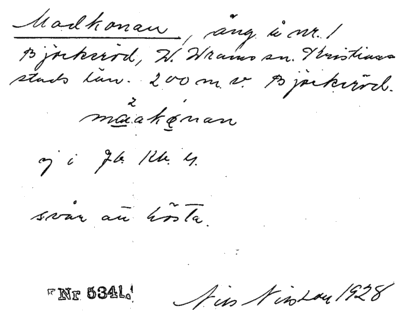 Madkonan, äng å nr. 1
Björkeröd, V. Vrams sn. Kristian-
stads län. 200 m v. Björkeröd.
ej i Jb.
svår att hösta.
Nr 5341.
Nils Nilsson 1928